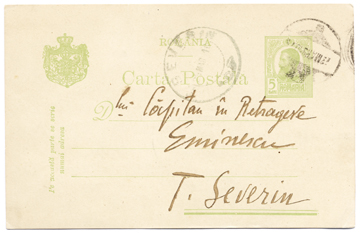 ROMANIA
SEVERIN
Carte Postala
5
D lui Căpitan în Retragere
Eminescu
T. Severin
Pe această parte se scrie
numai adresa